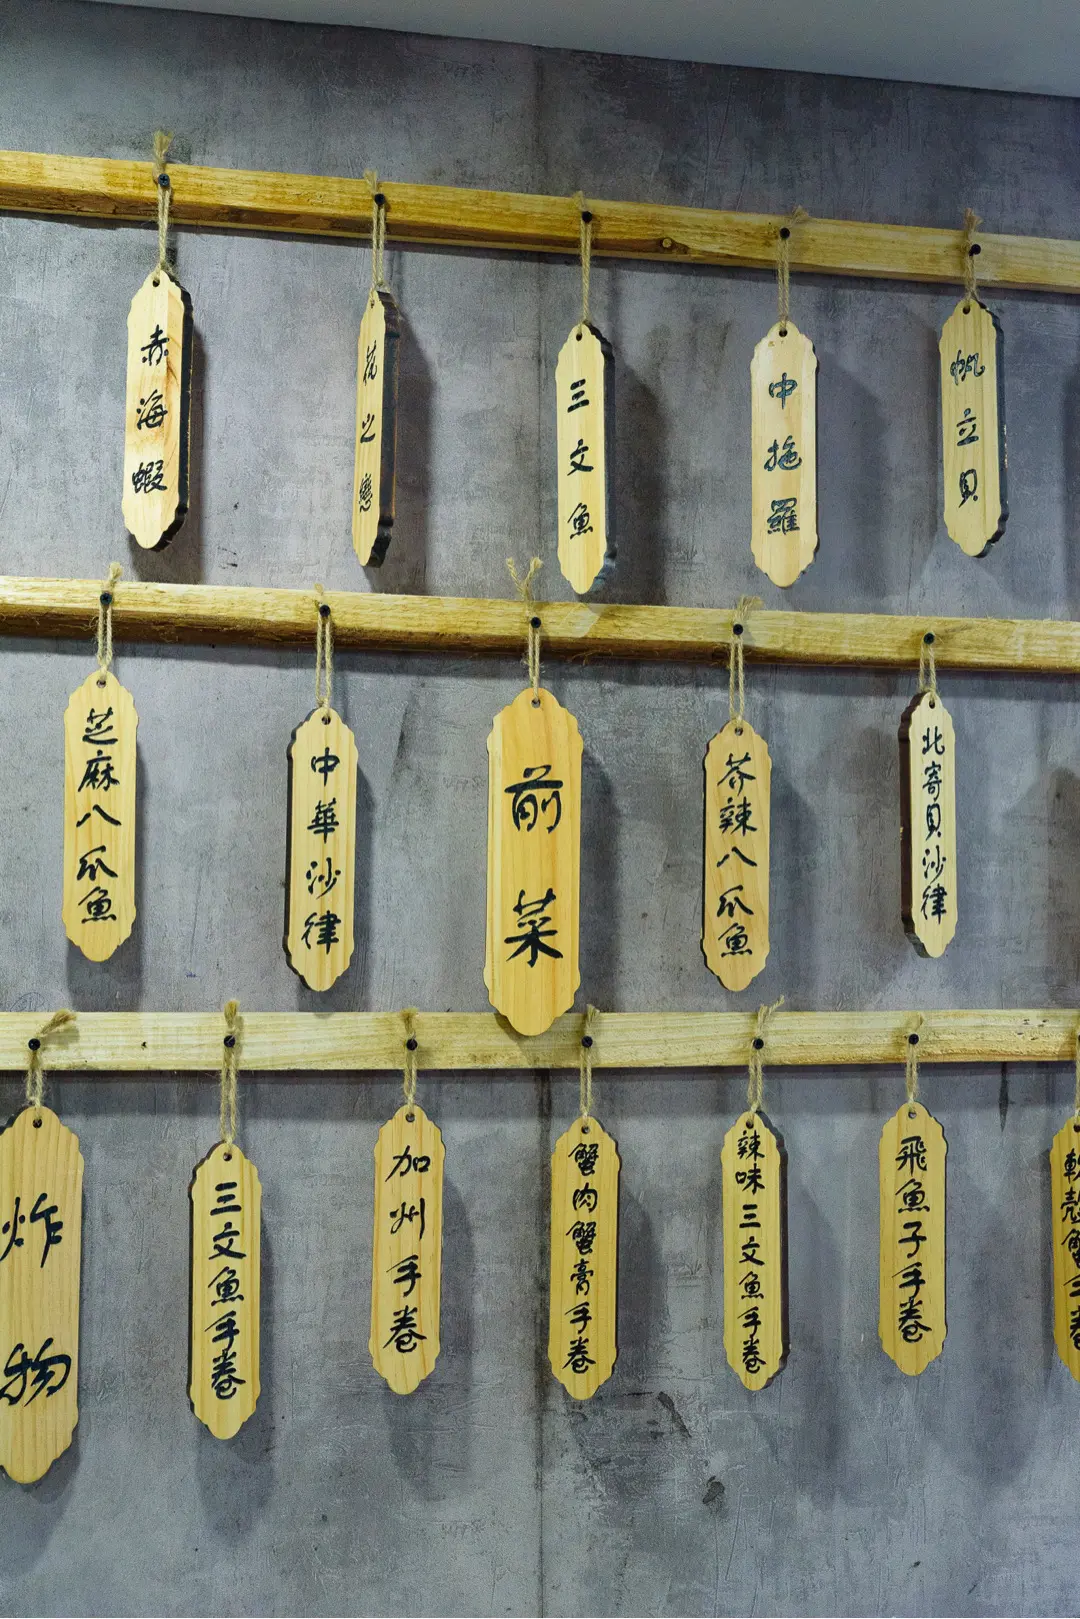 赤海蝦
花之戀
三文魚
中拖羅
帆立貝
芝麻八爪魚
中華沙律
前菜
芥辣八爪魚
北寄貝沙律
炸物
三文魚手卷
加州手卷
蟹肉蟹膏手卷
辣味三文魚手卷
飛魚子手卷
軟殼蟹手卷